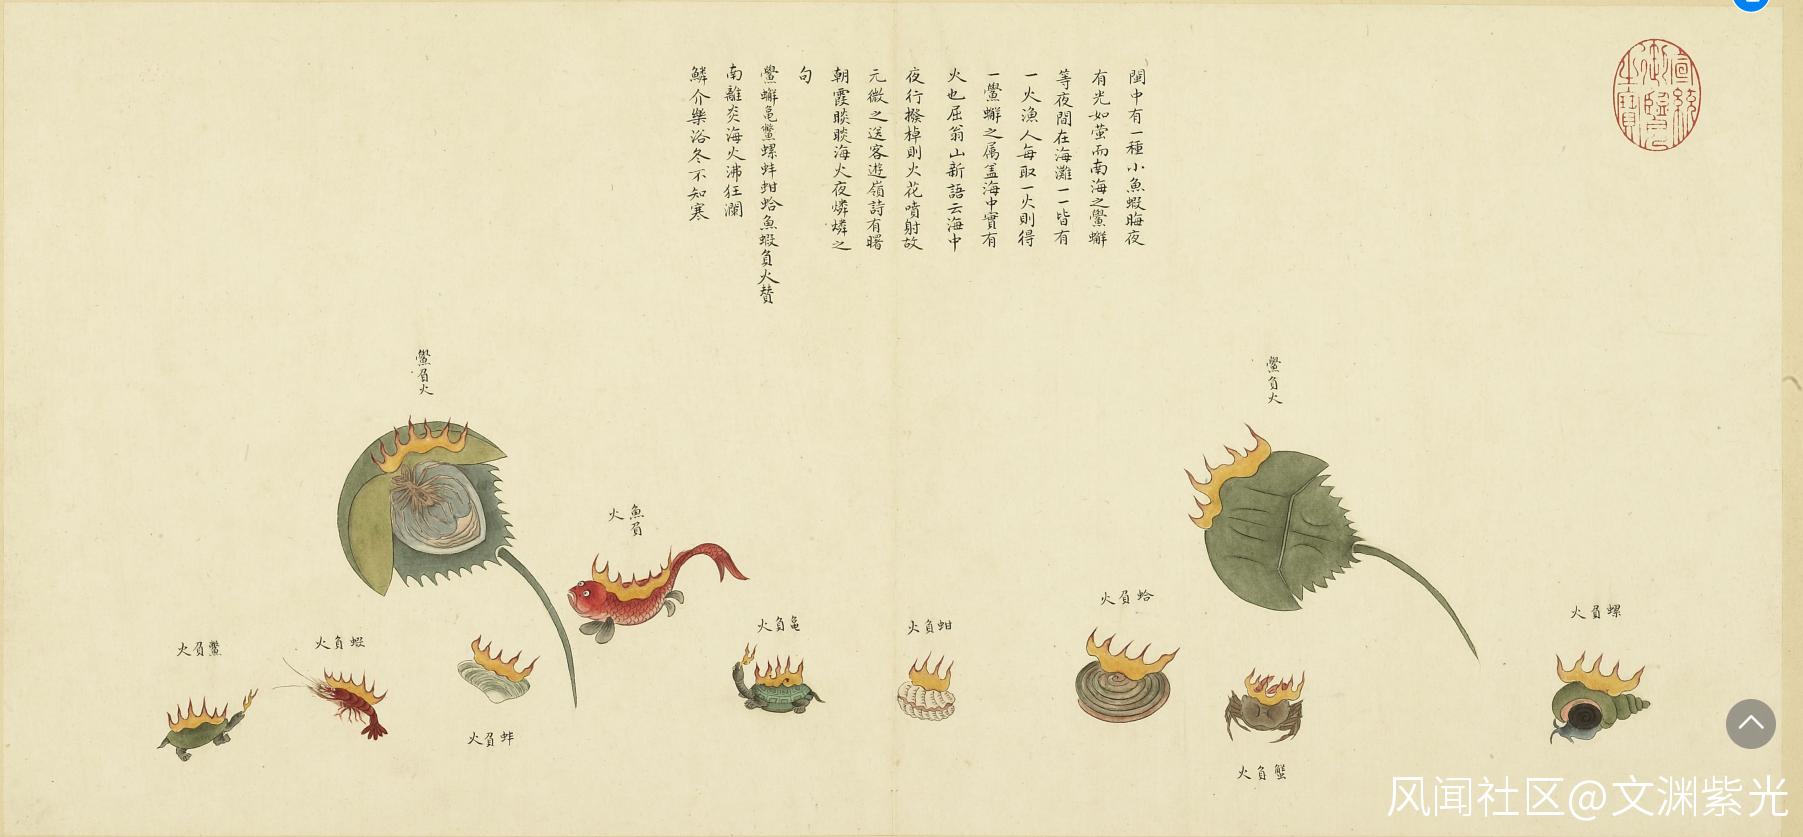 宣統御覽之寶
閩中有一種小魚蝦晦夜
有光如萤而南海之鱟蠏
等夜間在海灘一一皆有
一火漁人每取一火則得
一鱟蠏之属盖海中實有
火也屈翁山新語云海中
夜行撥棹則火花噴射故
元微之送客遊嶺詩有曙
朝霞睒睒海火夜燐燐之
句
鱟蠏龜鱉螺蚌蚶蛤魚蝦負火贊
南離炎海火沸狂瀾
鱗介樂浴冬不知寒
鱟負火
鱟負火
魚負火
螺負火
蛤負火
蟹負火
蚶負火
龜負火
蚌負火
蝦負火
鱉負火
风闻社区@文渊紫光